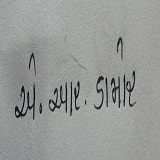 એ. આર. ડામોર